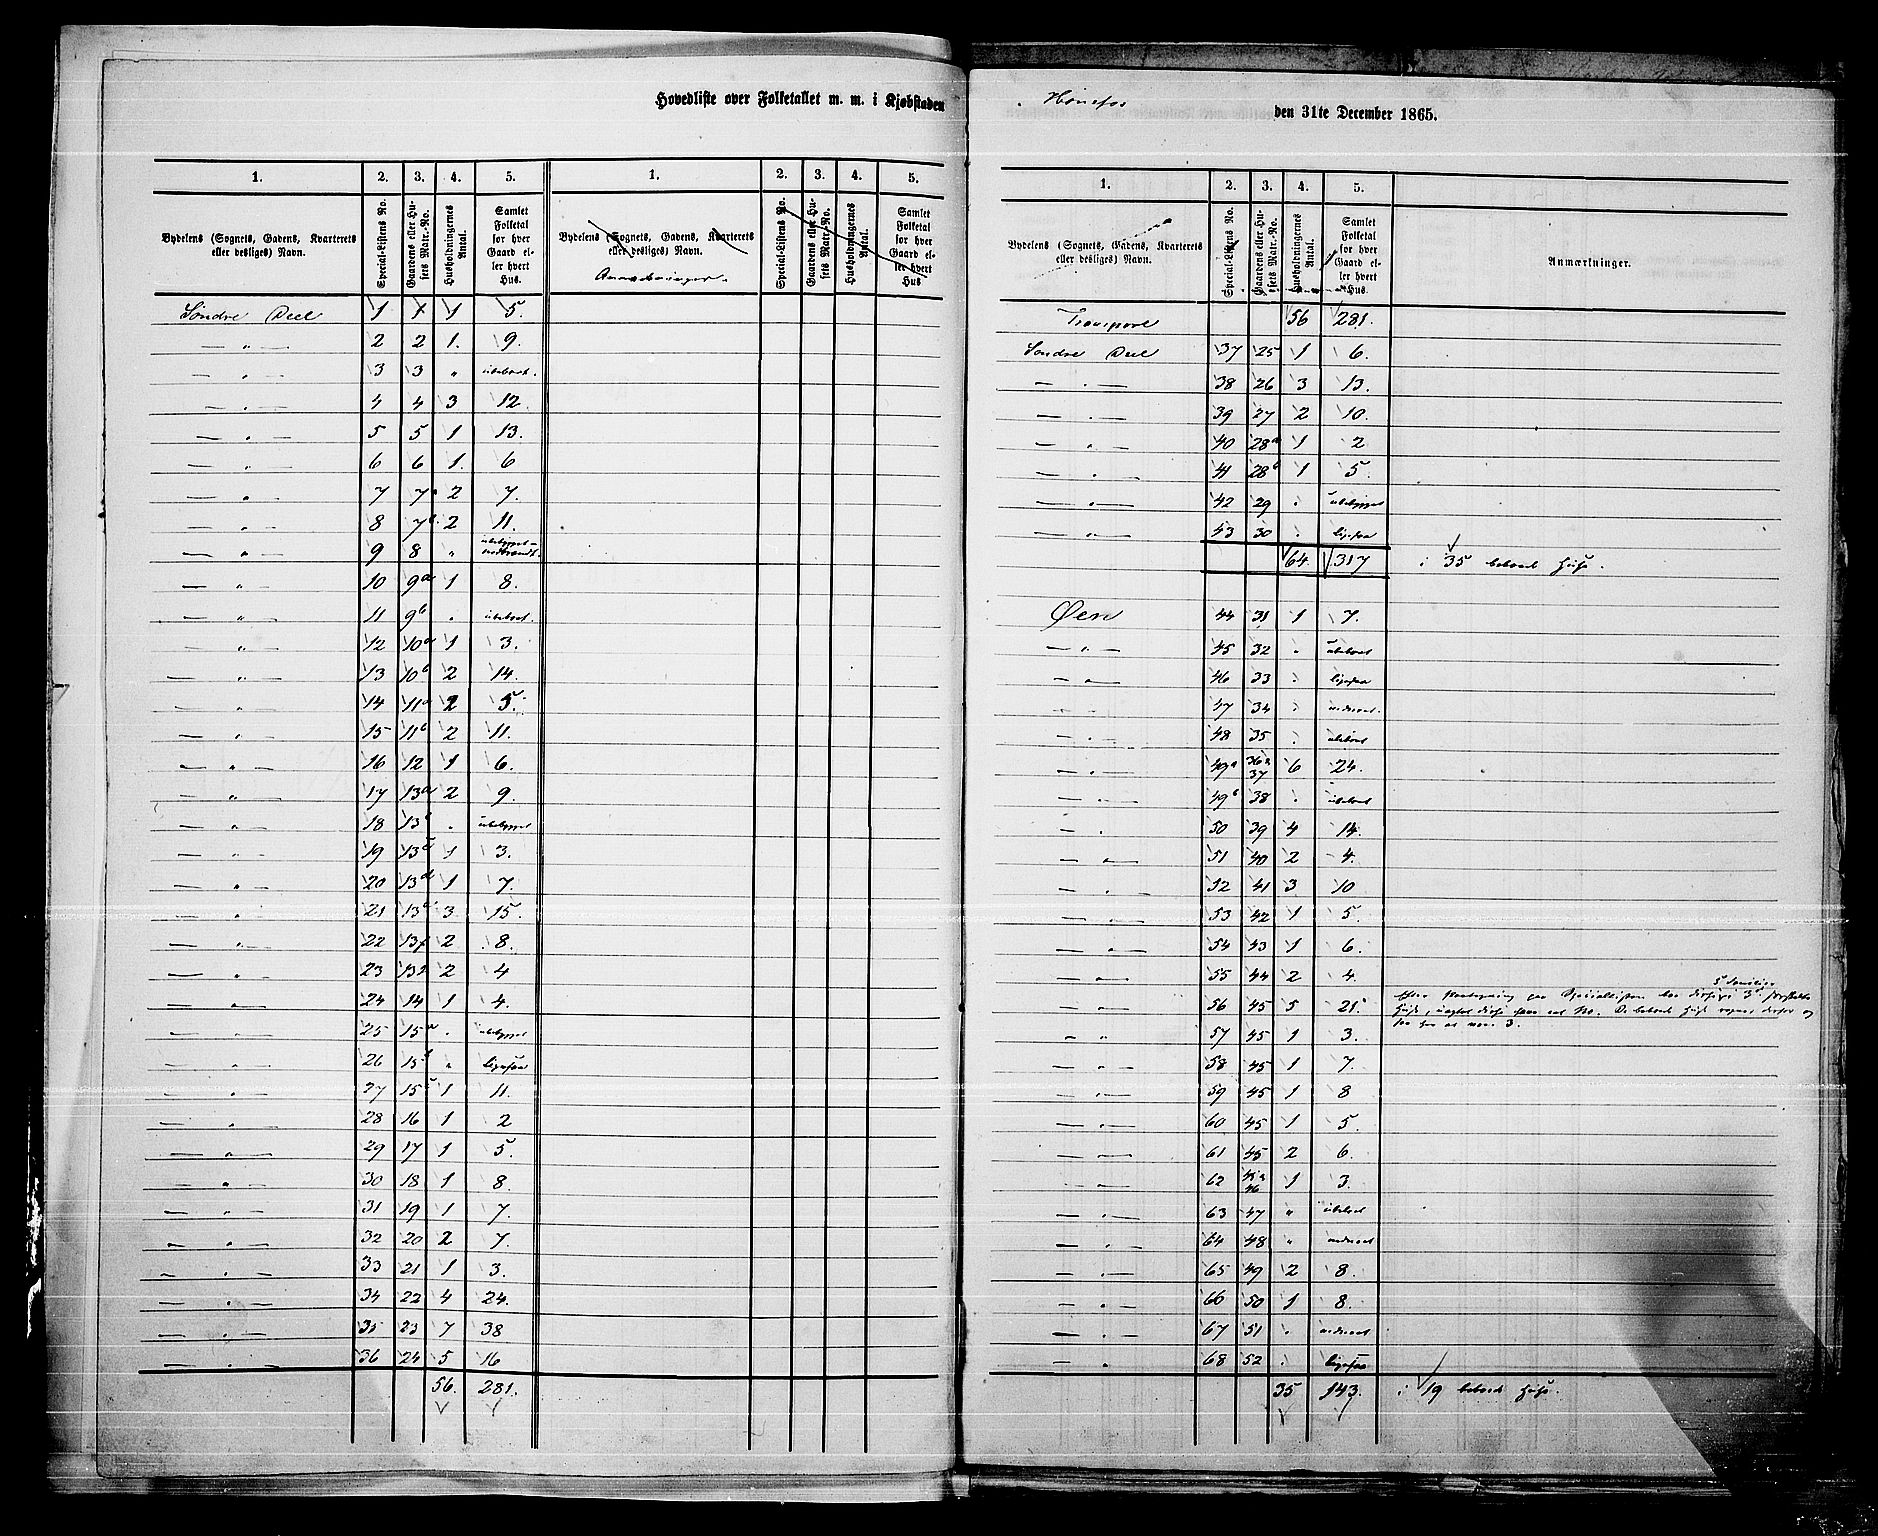 Hovedliste over Folketallet m. m. i Kjøbstaden Hønefos den 31te December 1865.
1. 2. 3. 4. 5. 1. 2. 3. 4. 5.
Bydelens (Sognets, Gadens, Kvarterets eller desliges) Navn. Special-Listens No. Gaardens eller Husets Matr.-No. Husholdningernes Antal. Samlet Folketal for hver Gaard eller hvert Hus.
Bydelens (Sognets, Gadens, Kvarterets eller desliges) Navn. Special-Listens No. Gaardens eller Husets Matr.-No. Husholdningernes Antal. Samlet Folketal for hver Gaard eller hvert Hus
Søndre Deel 1 1 1 5.
— " — 2 2 1. 9.
— " — 3 3 " ubeboet.
— " — 4 4 3 12.
— " — 5 5 1 13.
— " — 6 6 1. 6
— " — 7 7a 2 7.
— " — 8 7b 2 11.
— " — 9 8 " ubebygget
— " — 10 9a 1 8.
— " — 11 9b " ubeboet.
— " — 12 10a 1 3.
— " — 13 10b 2 14.
— " — 14 11a 2 5.
— " — 15 11b 2 11.
— " — 16 12 1 6.
— " — 17 13a 2 9.
— " — 18 13b " ubebygget
— " — 19 13c 1 3.
— " — 20 13d 1 7.
— " — 21 13e 3 15.
— " — 22 13f 2 8.
— " — 23 13g 2 4
— " — 24 14 1 4.
— " — 25 15a " ubebygget
— " — 26 15b " ligesaa
— " — 27 15c 1 11.
— " — 28 16 1 2
— " — 29 17 1 5.
— " — 30 18 1 8.
— " — 31 19 1 7.
— " — 32 20 2 7
— " — 33 21 1 3.
— " — 34 22 4 24.
— " — 35 23 7 38
— " — 36 24 5 16
56. 281.
1. 2. 3. 4. 5.
Bydelens (Sognets, Gadens, Kvarterets eller desliges) Navn. Special-Listens No. Gaardens eller Husets Matr.-No. Husholdningernes Antal. Samlet Folketal for hver Gaard eller hvert Hus. Anmærkninger.
Transport 56 281.
Søndre Deel 37 25 1 6.
— " — 38 26 3 13.
— " — 39 27 2 10.
— " — 40 28a 1 2
— " — 41 28b 1 5.
— " — 42 29 " ubebygget
— " — 43 30 " ligesaa
64. 317 i 35 beboede Huse.
Øen 44 31 1 7.
— " — 45 32 " ubeboet
— " — 46 33 " ligesaa
— " — 47 34 "
— " — 48 35 " ubeboet
— " — 49a 36 & 37 6 24.
— " — 49b 38 " ubeboet
— " — 50 39 4 14.
— " — 51 40 2 4.
— " — 52 41 3 10
— " — 53 42 1 5.
— " — 54 43 1 6.
— " — 55 44 2 4.
— " — 56 45 5 21
— " — 57 45 1 3.
— " — 58 45 1 7.
— " — 59 45 1 8
— " — 60 45 1 5.
— " — 61 45 2 6.
— " — 62 45 & 46 1 3.
— " — 63 47 " ubeboet
— " — 64 48 "
— " — 65 49 2 8.
— " — 66 50 1 8.
— " — 67 51 "
— " — 68 52 " ligesaa
35 143. i 19 beboede Huse.